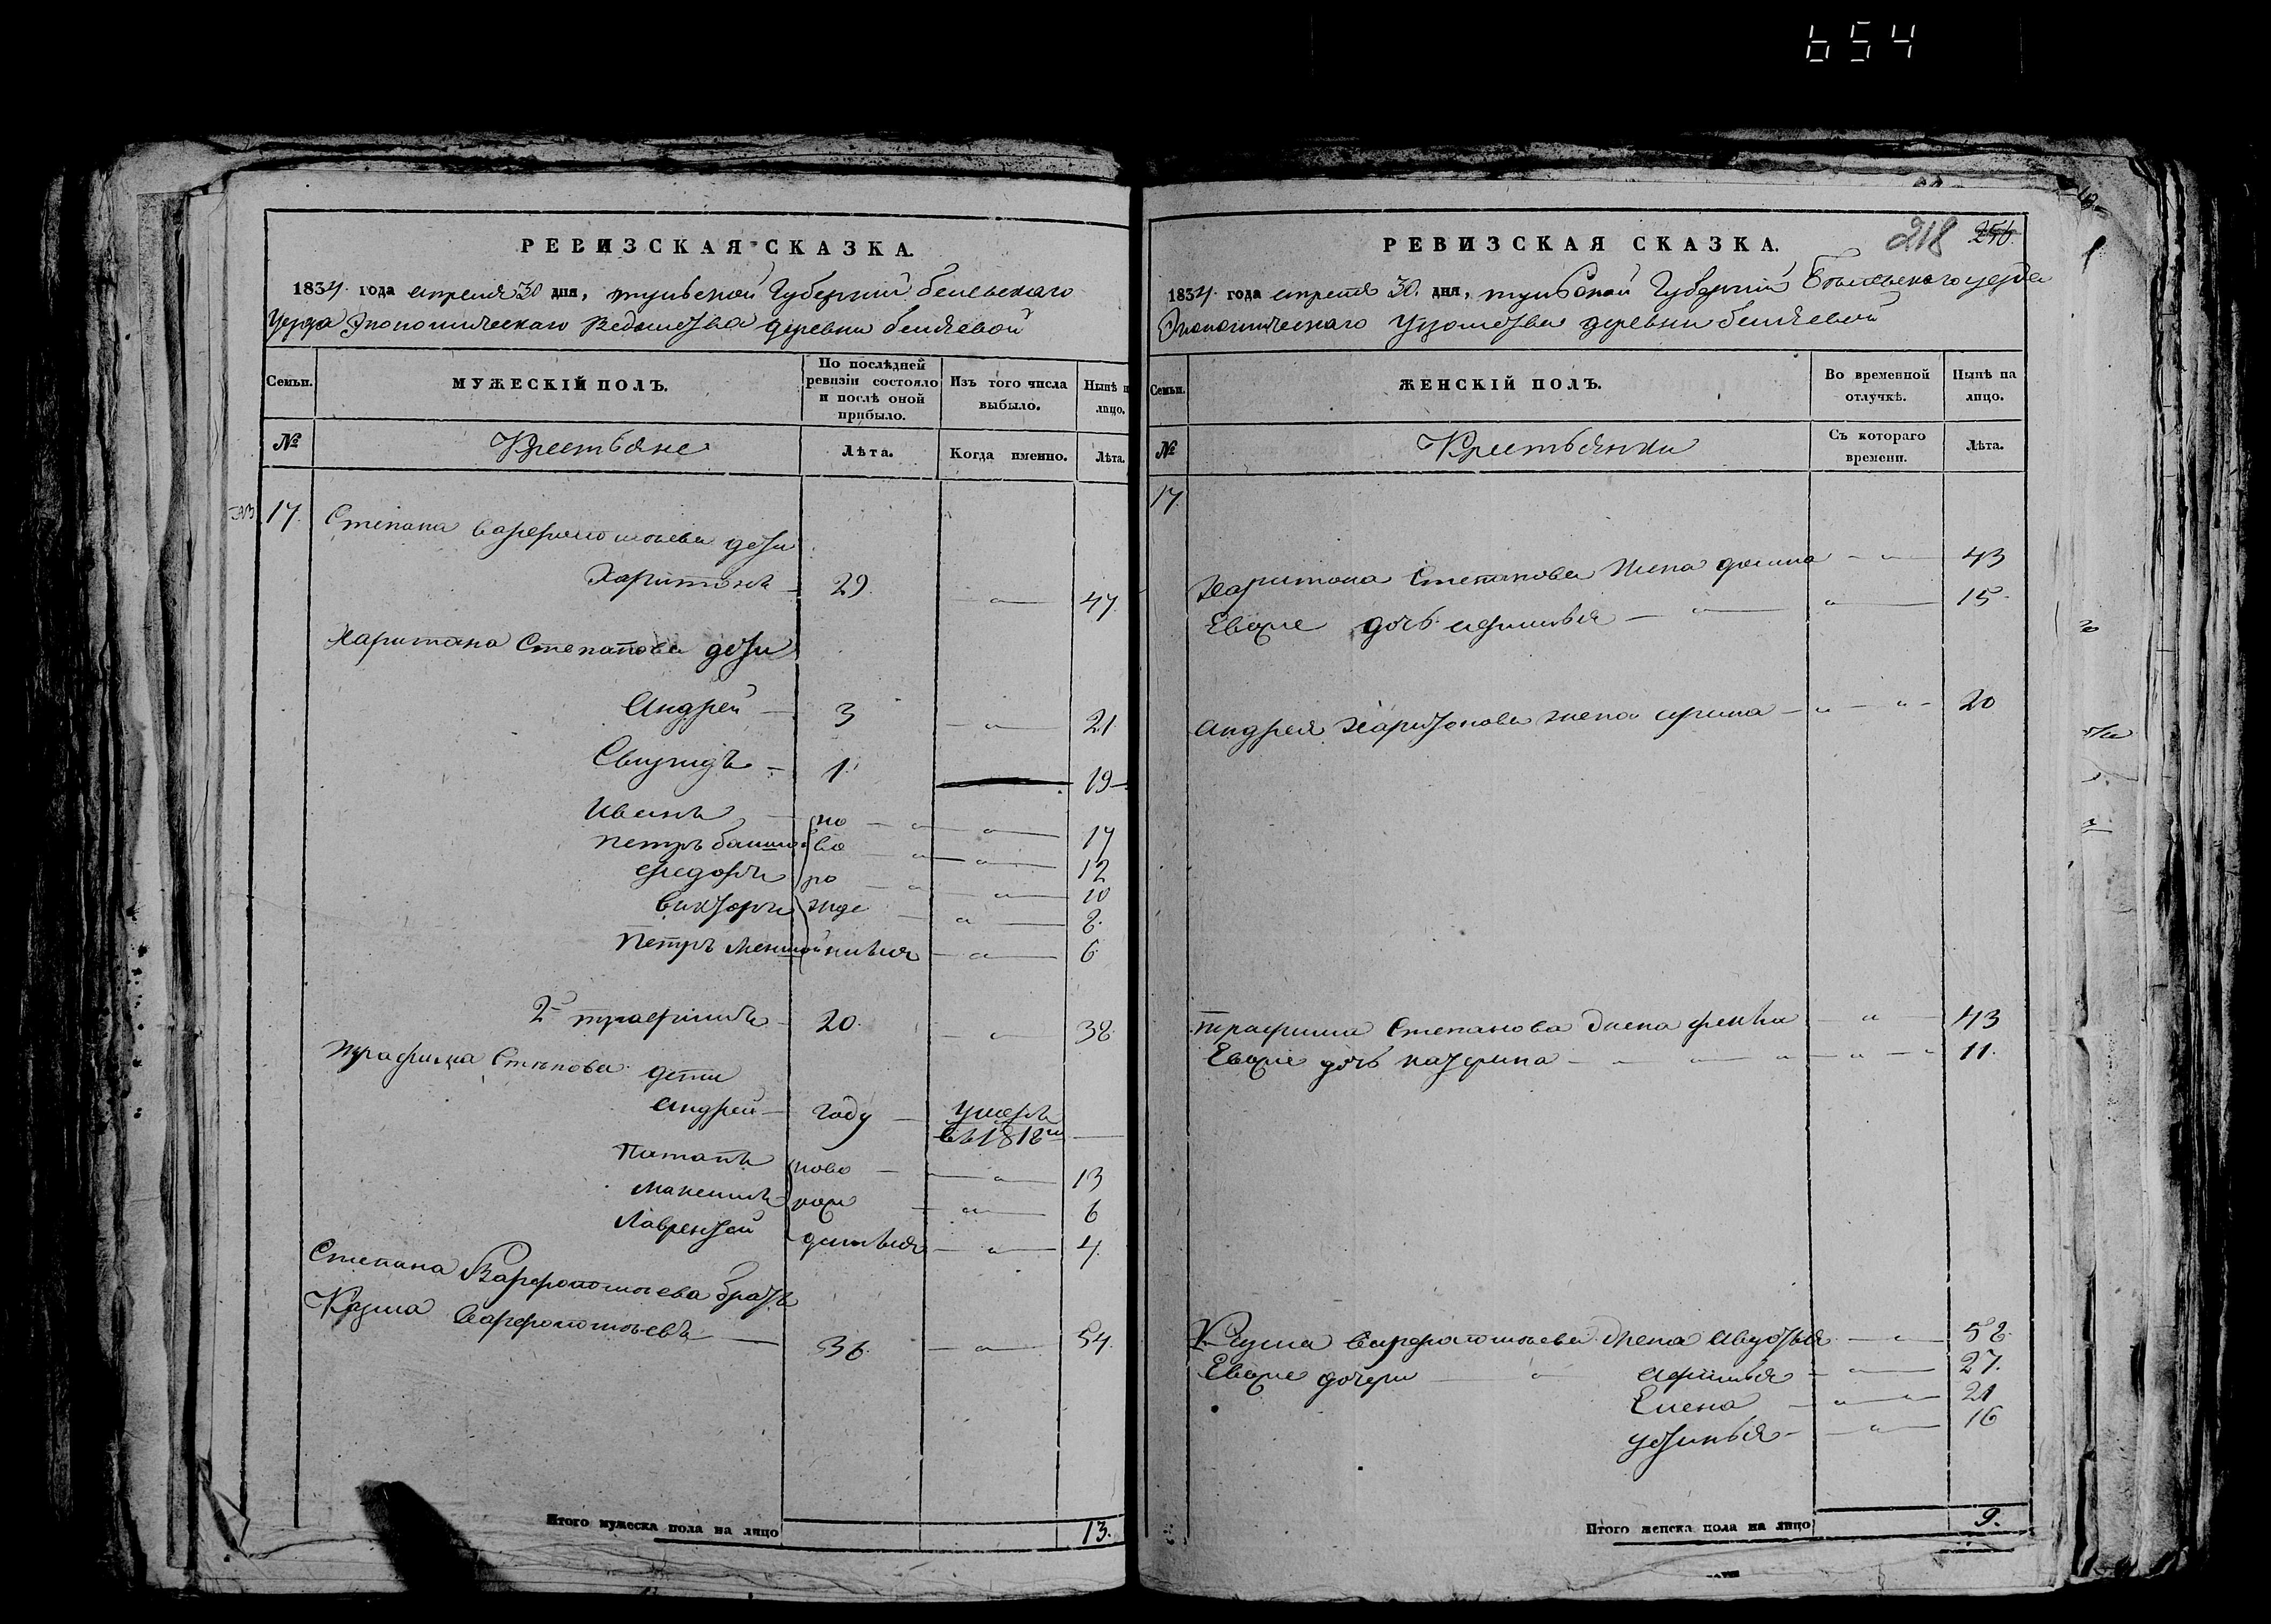 654
РЕВИЗСКАЯ СКАЗКА.
1834. года апреля 30 дня, тульской Губернии белевскаго
уезда Экономическаго Ведомства деревни
Семьи.
МУЖЕСКІЙ ПОЛЪ.
По послѣдней ревизіи состояло и послѣ оной прибыло.
Изъ того числа выбыло.
Нынѣ н лицо.
№
Крестьяне
Лѣта.
Когда именно.
Лѣта.
17. Степана варфоломеева дети
Харитонъ 29. 47
Харитона Степанова дети
Андрей 3 21.
1. 19
Иванъ но 17
Петръ болшой во 12
федоръ ро 10
викторъ жде 8.
Петръ меншой нныя 6
2й трафимъ 20. 38.
трафима Степнова дети
андрей году умеръ
въ 1818м
Потапъ ново 13
максимъ рож 6
Лаврентей денныя 4
Степана Варфоломеева братъ
Кузма варфоломеевъ 36. 54.
Итого мужеска пола на лицо 13.
РЕВИЗСКАЯ СКАЗКА.
218 256.
1834. года апреля 30. дня, тульской Губернии Белевскаго уезда
Экономическаго деревни
Семьи.
ЖЕНСКІЙ ПОЛЪ.
Во временной отлучкѣ.
Нынѣ на лицо.
№
Крестьянки
Съ котораго времени.
Лѣта.
17.
Харитона Степанова жена домна 43
Евоже дочь афимья 15
Андрея Харитонова жена арина 20
трафима Степанова жена фекла 43
Евоже дочь катерина 11.
Кузма варфоломеева жена авдотья 52.
Евоже дочери афимья 27.
Елена 21
устинья 16
Итого женска пола на лицо 9.